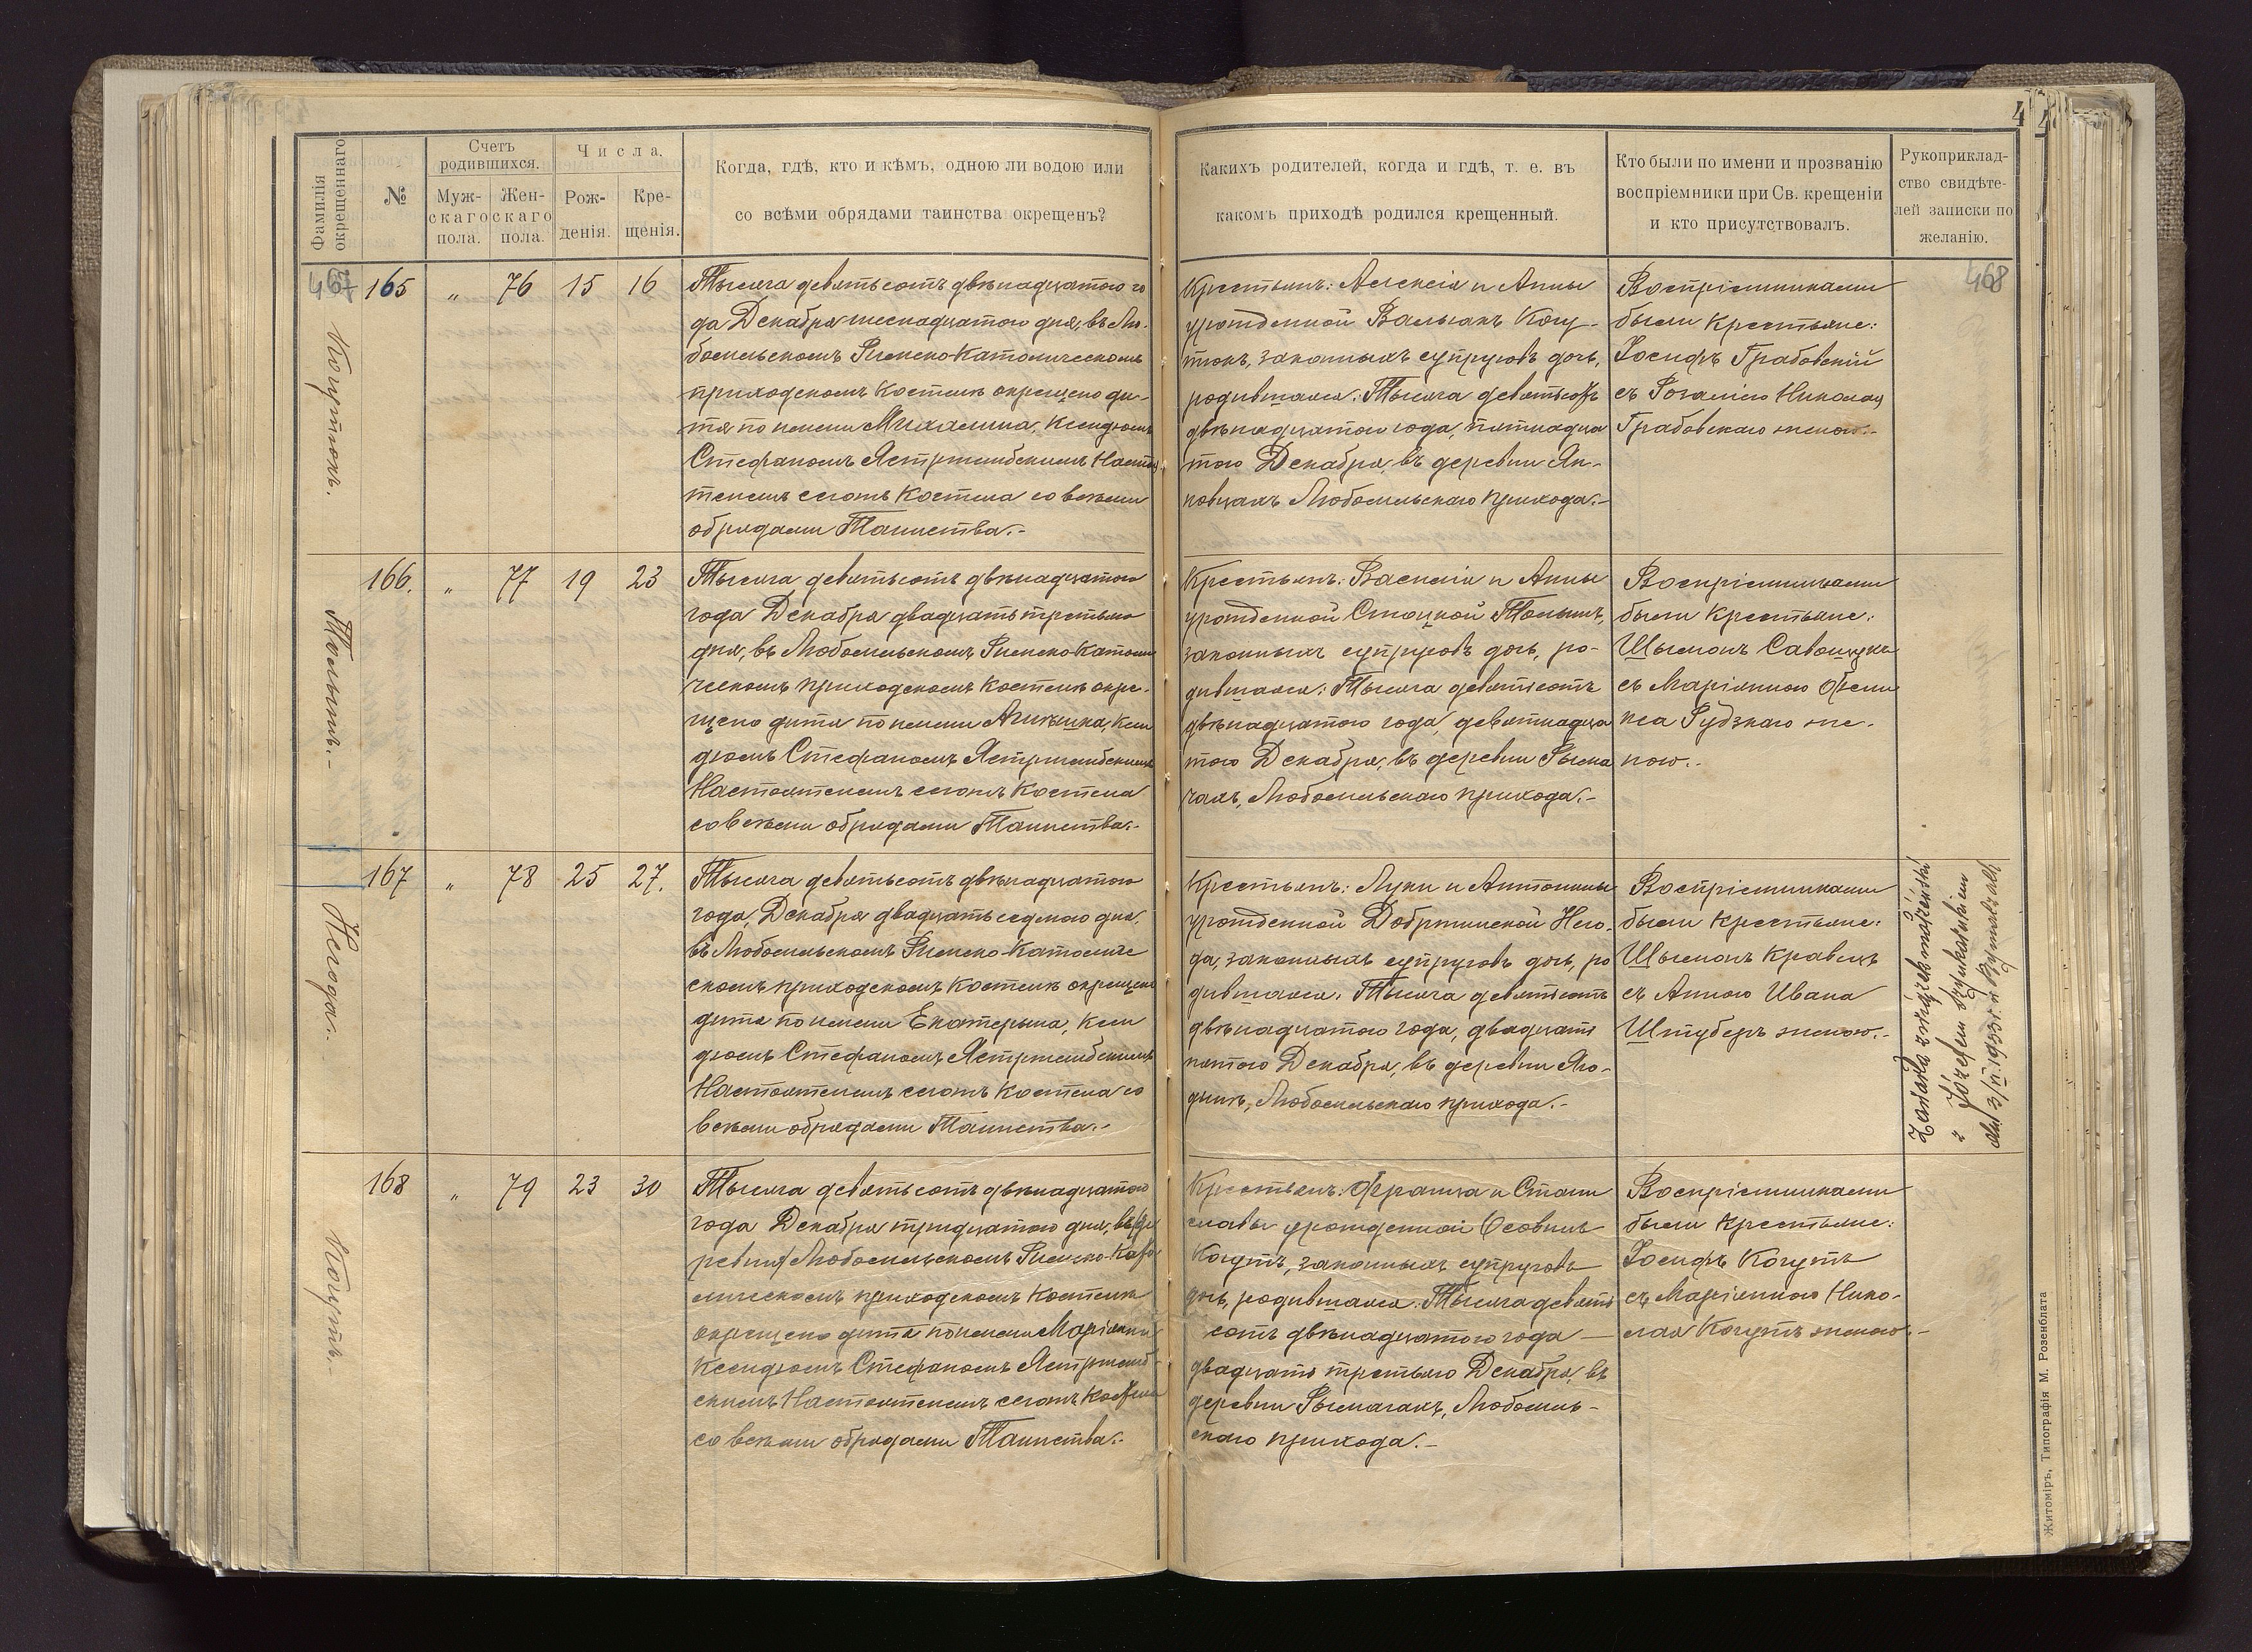 4
Фамилія окрещеннаго
№
Счетъ родившихся.
Мужскаго пола.
Женскаго пола.
Числа.
Рожденія.
Крещенія.
Когда, гдѣ, кто и кѣмъ, одною ли водою или
со всѣми обрядами таинства окрещенъ?
Какихъ родителей, когда и гдѣ, т. е. въ
какомъ приходѣ родился крещенный.
Кто были по имени и прозванію
воспріемники при Св. крещеніи
и кто присутствовалъ.
Рукоприклад-
ство свидѣте-
лей записки по
желанію.
467
468
Когутюкъ.
165 " 76 15 16
Тысяча девятьсотъ двѣнадцатого го
да Декабря шеснадцатого дня, въ Лю-
бомльскомъ Римско-Католическомъ
приходскомъ Костелѣ окрещено ди-
тя по имени Михалина, Ксендзомъ
Стефаномъ Ястржембскимъ Настоя
телемъ сегожъ Костела со всѣми
обрядами Таинства.-
Крестьянъ: Алексія и Анны
урожденной Вальчакъ Когу-
тюкъ, законныхъ супруговъ дочь,
родившаяся: Тысяча девятьсотъ
двѣнадцатого года, пятнадца
того Декабря, въ деревни Ян-
новцахъ Любомльскаго прихода.-
Воспріемниками
были Крестьяне:
Іосифъ Грабовскій
съ Розаліею Николая
Грабовскаго женою.-
Тольпа.-
166. " 77 19 23
Тысяча девятьсотъ двѣнадцатого
года Декабря двадцать третьяго
дня, въ Любомльскомъ Римско-Католи
ческомъ приходскомъ Костелѣ окре-
щено дитя по имени Агнѣшка, Ксен
дзомъ Стефаномъ Ястржембскимъ
Настоятелемъ сегожъ Костела
со всѣми обрядами Таинства.-
Крестьянъ: Василія и Анны
урожденной Стоцкой
законныхъ супруговъ дочь, ро-
дившаяся: Тысяча девятьсотъ
двѣнадцатого года, девятнадца
того Декабря, въ деревни Рыма
чахъ, Любомльскаго прихода.-
Воспріемниками
были Крестьяне:
Шымонъ
съ Маріянною
Рудзкаго же-
ною.-
Негода.-
167 " 78 25 27.
Тысяча девятьсотъ двѣнадцатого
года, Декабря двадцать седмого дня,
въ Любомльскомъ Римско-Католиче
скомъ приходскомъ Костелѣ окрещено
дитя по имени Екатерына, Ксен
дзомъ Стефаномъ Ястржембскимъ
Настоятелемъ сегожъ Костела со
всѣми обрядами Таинства.-
Крестьянъ: Луки и Антонины
урожденной Добртинской Него-
да, законныхъ супруговъ дочь, ро
дившаяся: Тысяча девятьсотъ
двѣнадцатого года, двадцать
пятого Декабря, въ деревни Яго-
динѣ, Любомльскаго прихода.-
Воспріемниками
были Крестьяне:
Шымонъ Кравецъ
съ Анною Ивана
Штуберъ женою.-
Zawarła związek małżeński
z Józefem
dn. 3/II 1933 r. w Rymaczach
Когутъ.-
168 " 79 23 30
Тысяча девятьсотъ двѣнадцатого
года Декабря тридцатого дня, въ де
ревни Любомльскомъ Римско-Като
лическомъ приходскомъ Костелѣ
окрещено дитя по имени Маріянна
Ксендзомъ Стефаномъ Ястржемб-
скимъ Настоятелемъ сегожъ Костела
со всѣми обрядами Таинства.-
Крестьянъ: Франца и Стани
славы урожденной Совинъ
Когутъ, законныхъ супруговъ
дочь, родившаяся: Тысяча девять
сотъ двѣнадцатого года —
двадцать третьяго Декабря, въ
деревни Рымачахъ, Любомль-
скаго прихода.-
Воспріемниками
были Крестьяне:
Іосифъ Когутъ
съ Маріянною Нико-
лая Когутъ женою.-
Житоміръ, Типографія М. Розенблата